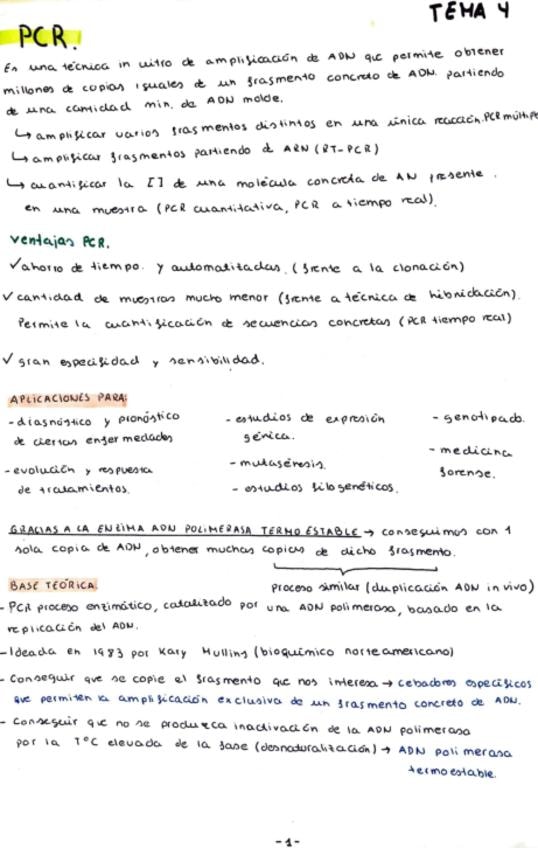 TEMA 4
PCR.
Es una técnica in vitro de amplificación de ADN que permite obtener
millones de copias iguales de un fragmento concreto de ADN. partiendo
de una cantidad min. de ADN molde.
↳ amplificar varios fragmentos distintos en una única reacción. PCR múltiple
↳ amplificar fragmentos partiendo d ARN (RT-PCR)
↳ cuantificar la [] de una molécula concreta de AN presente.
en una muestra (PCR cuantitativa, PCR a tiempo real).
Ventajas PCR.
✓ ahorro de tiempo. y automatizadas. (frente a la clonación)
✓ cantidad de muestras mucho menor (frente a técnica de hibridación).
Permite la cuantificación de secuencias concretas (PCR tiempo real)
✓ gran especifidad y sensibilidad.
APLICACIONES PARA:
- diagnóstico y pronóstico
de ciertas enfermedades
- evolución y respuesta
de tratamientos.
- estudios de expresión
génica.
- mutagénesis.
- estudios filogenéticos.
- genotipado.
- medicina
forense.
GRACIAS A LA ENZIMA ADN POLIMERASA TERMOESTABLE → conseguimos con 1
sola copia de ADN, obtener muchas copias de dicho fragmento.
proceso similar (duplicación ADN in vivo)
BASE TEÓRICA
- PCR proceso enzimático, catalizado por una ADN polimerasa, basado en la
replicación del ADN.
- Ideada en 1983 por Kary Mullins (bioquímico norteamericano)
- Conseguir que se copie el fragmento que nos interesa → cebadores específicos
que permiten la amplificación exclusiva de un fragmento concreto de ADN.
- Conseguir que no se produzca inactivación de la ADN polimerasa
por la TºC elevada de la fase (desnaturalización) → ADN polimerasa
termoestable.
-1-